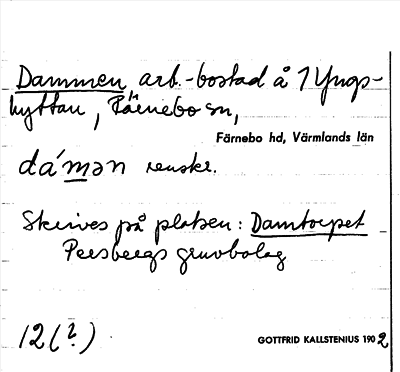 Dammen arb.-bostad å 1 Yngs-
hyttan, Färnebo sn,
Färnebo hd, Värmlands län
da´mən renskr.
Skrives på platsen: Damtorpet
Persbergs gruvbolag
12(?)
GOTTFRID KALLSTENIUS 1902